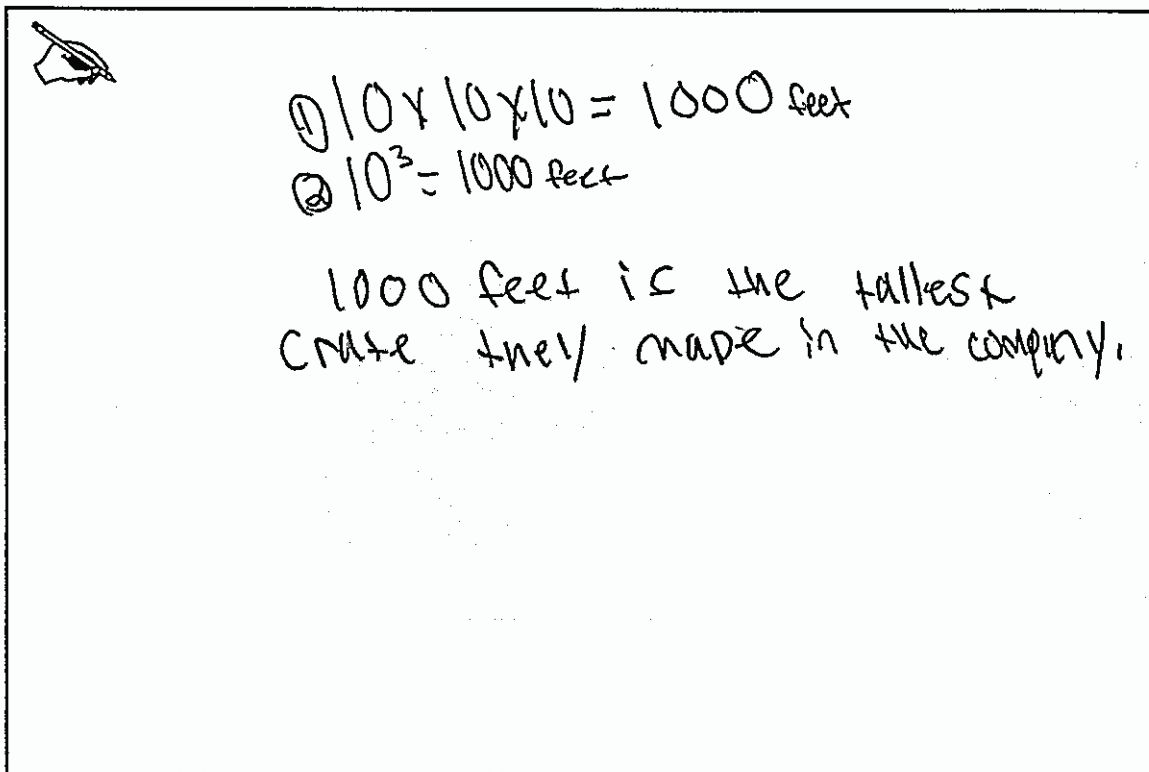 ① 10 x 10 x 10 = 1000 feet
② 10³ = 1000 feet
1000 feet is the tallest
crate they made in the company.